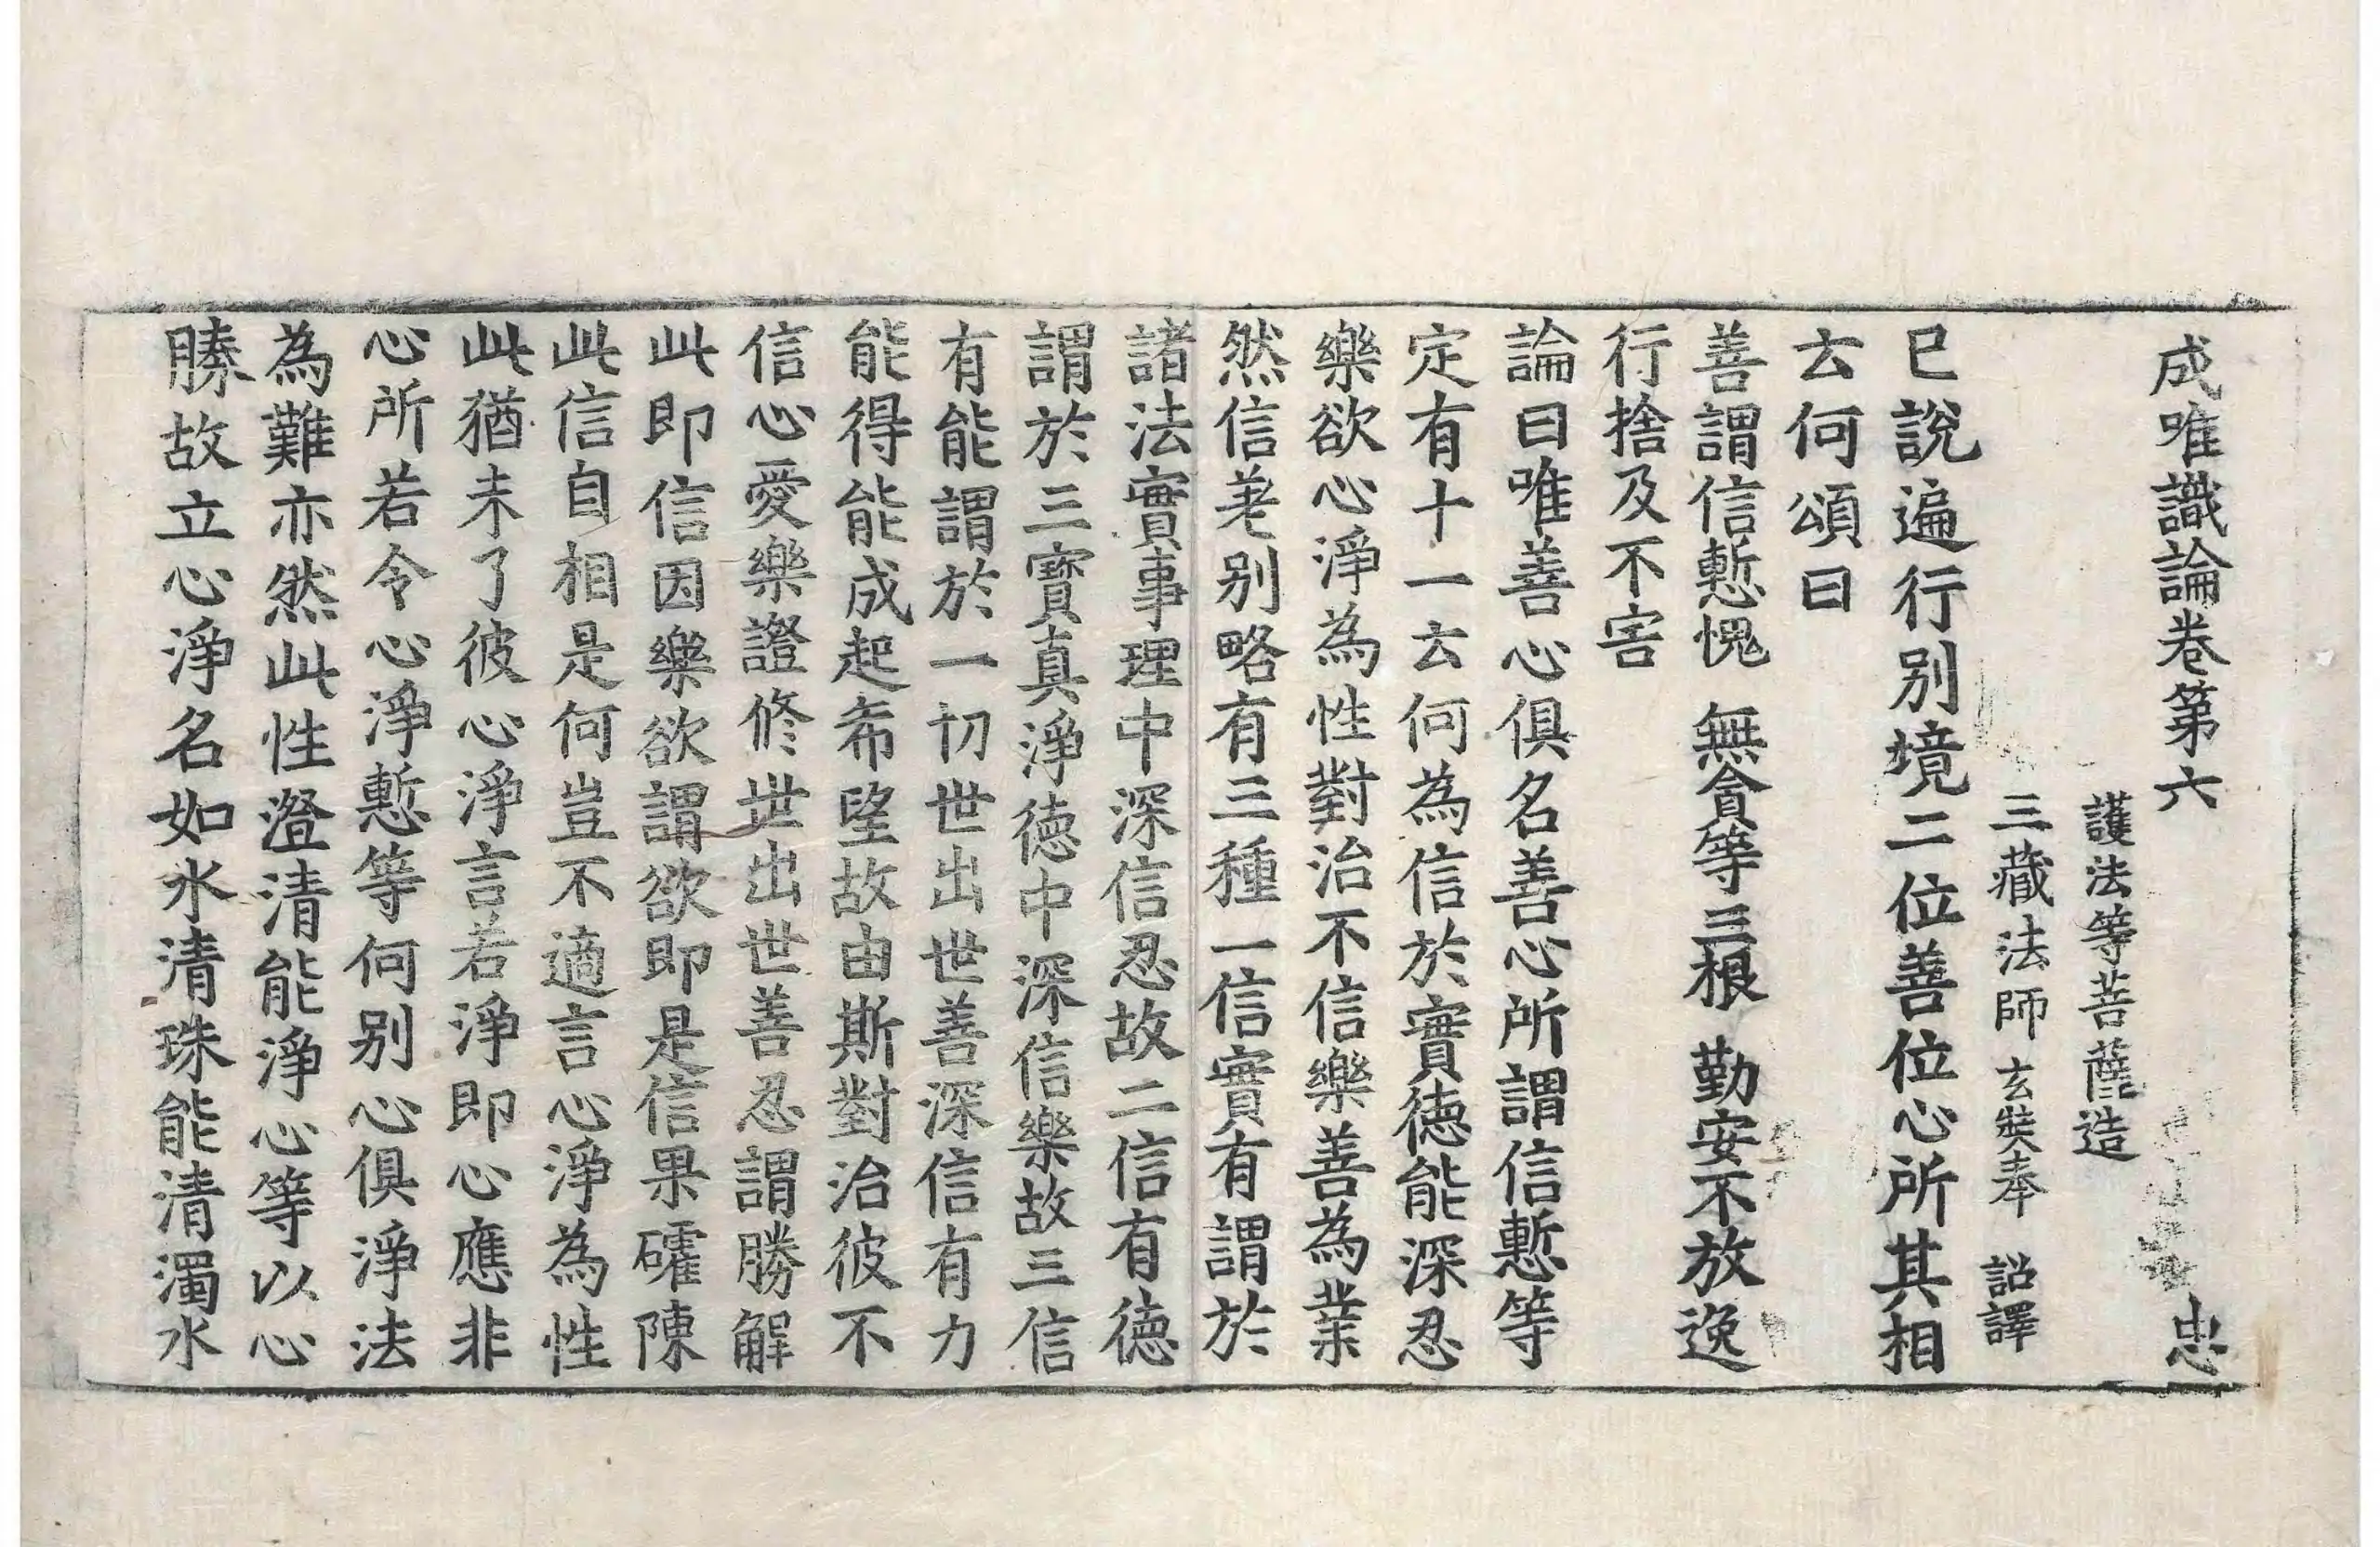 成唯識論卷第六 忠
護法等菩薩造
三藏法師玄奘奉 詔譯
已說遍行別境二位善位心所其相
云何頌曰
善謂信慙愧 無貪等三根 勤安不放逸
行捨及不害
論曰唯善心俱名善心所謂信慙等
定有十一云何為信於實德能深忍
樂欲心淨為性對治不信樂善為業
然信差別略有三種一信實有謂於
諸法實事理中深信忍故二信有德
謂於三寶真淨德中深信樂故三信
有能謂於一切世出世善深信有力
能得能成起希望故由斯對治彼不
信心愛樂證修世出世善忍謂勝解
此即信因樂欲謂欲即是信果礭陳
此信自相是何豈不適言心淨為性
此猶未了彼心淨言若淨即心應非
心所若令心淨慙等何別心俱淨法
為難亦然此性澄清能淨心等以心
勝故立心淨名如水清珠能清濁水